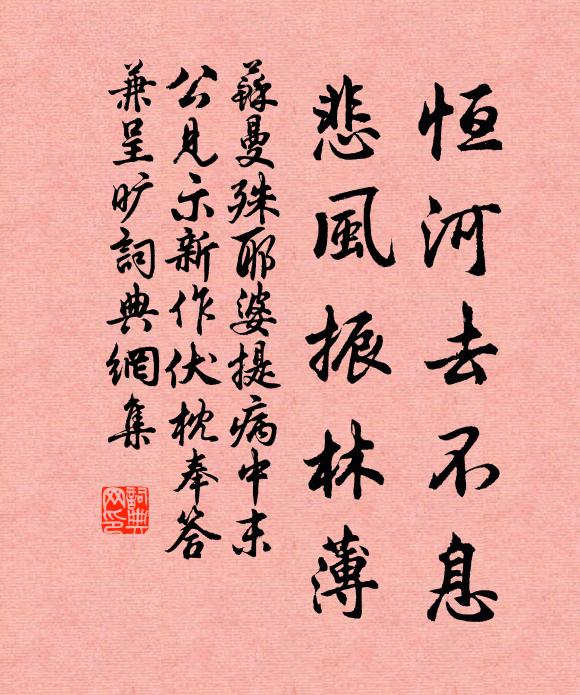 恒河去不息
悲風振林薄
蘇曼殊耶婆提病中末
公見示新作伏枕奉答
兼呈旷詞典網集
詞典
网印